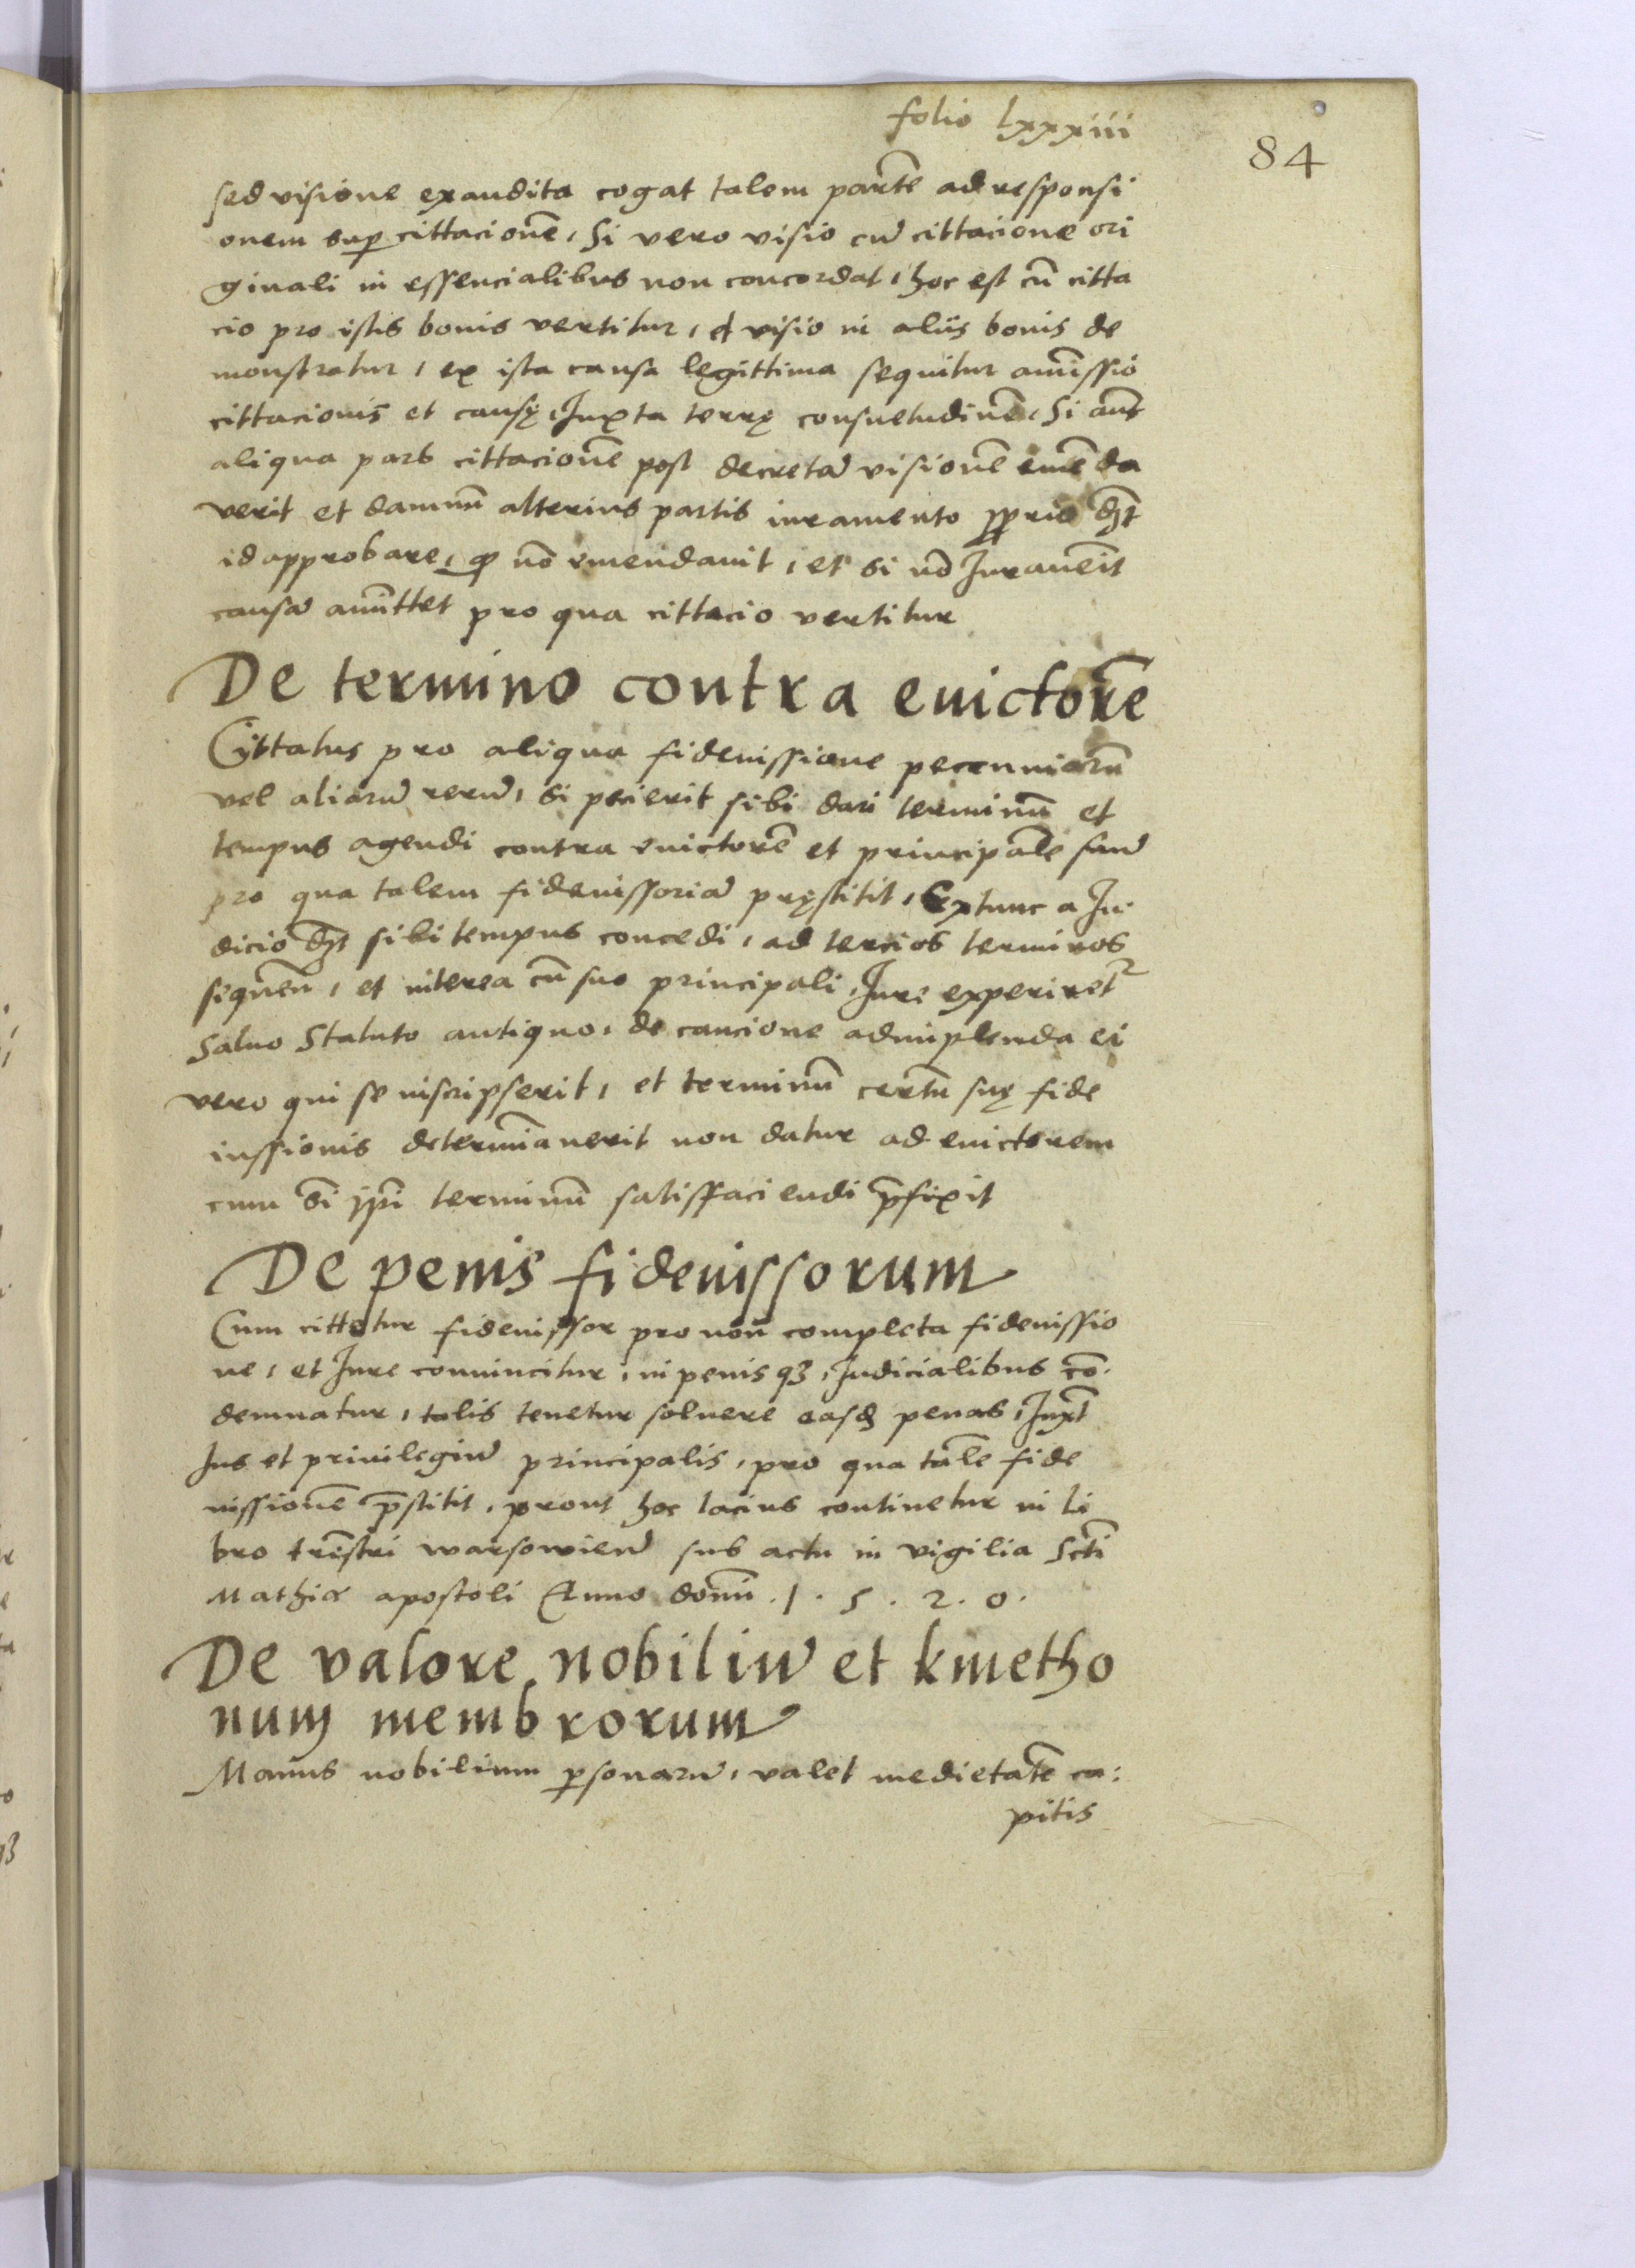 folio lxxxiii
84
sed visione exaudita cogat talem parte͂ ad responsi
onem sup cittacione͂, Si vero visio cu͂ cittacione ori
ginali in essencialibus non concordat, hoc est cu͂ citta
cio pro istis bonis vertitur, et visio in aliis bonis de
monstratur, ex ista causa legittima sequitur amissio
cittacionis et causę, Juxta terrę consuetudine͂, Si aut͂
aliqua pars cittacione͂ post decreta͂ visione͂ emenda
verit et damnu͂ alterius partis iuramento prio dꝫt
id approbare, ꝙ no͂ emendauit, et si no͂ Jurauerit
causa͂ amittet pro qua cittacio vertitur
De termino contra euictore͂
Cittatus pro aliqua fideiussione pecuniaru͂
vel aliaru͂ reru͂, si pecierit sibi dari terminu͂ et
tempus agendi contra euictore͂ et principale͂ suu͂
pro qua talem fideiussoria͂ pręstitit, Extunc a Ju
dicio dꝫt sibi tempus concedi, ad tercios terminos
sequen͂, et interea cu͂ suo principali, Jure experiret᷑
Saluo Statuto antiquo, de caucione adimplenda ei
vero qui se inscripserit, et terminu͂ certu͂ suę fide
iussionis determinauerit non datur ad euictorem
cum si͂ ip͂i terminu͂ satisfaciendi p͂fixit
De penis fideiussorum
Cum cittatur fideiussor pro non completa fideiussio
ne, et Jure conuincitur, in penis qꝫ, Judicialibus co͂
demnatur, talis tenetur soluere easd͂ penas, Juxt͂
Jus et priuilegiu͂ principalis, pro qua tale͂ fide
iussione͂ p͂stitit, prout hoc lacius continetur in li
bro tr͂estri warsowien͂ sub actu in vigilia Scti͂
Mathiæ apostoli Anno domi͂ . 1 . 5 . 2 . 0 .
De valore nobiliu͂ et kmetho
num membrorum
Manus nobilium personaru͂, valet medietate͂ ca:
pitis